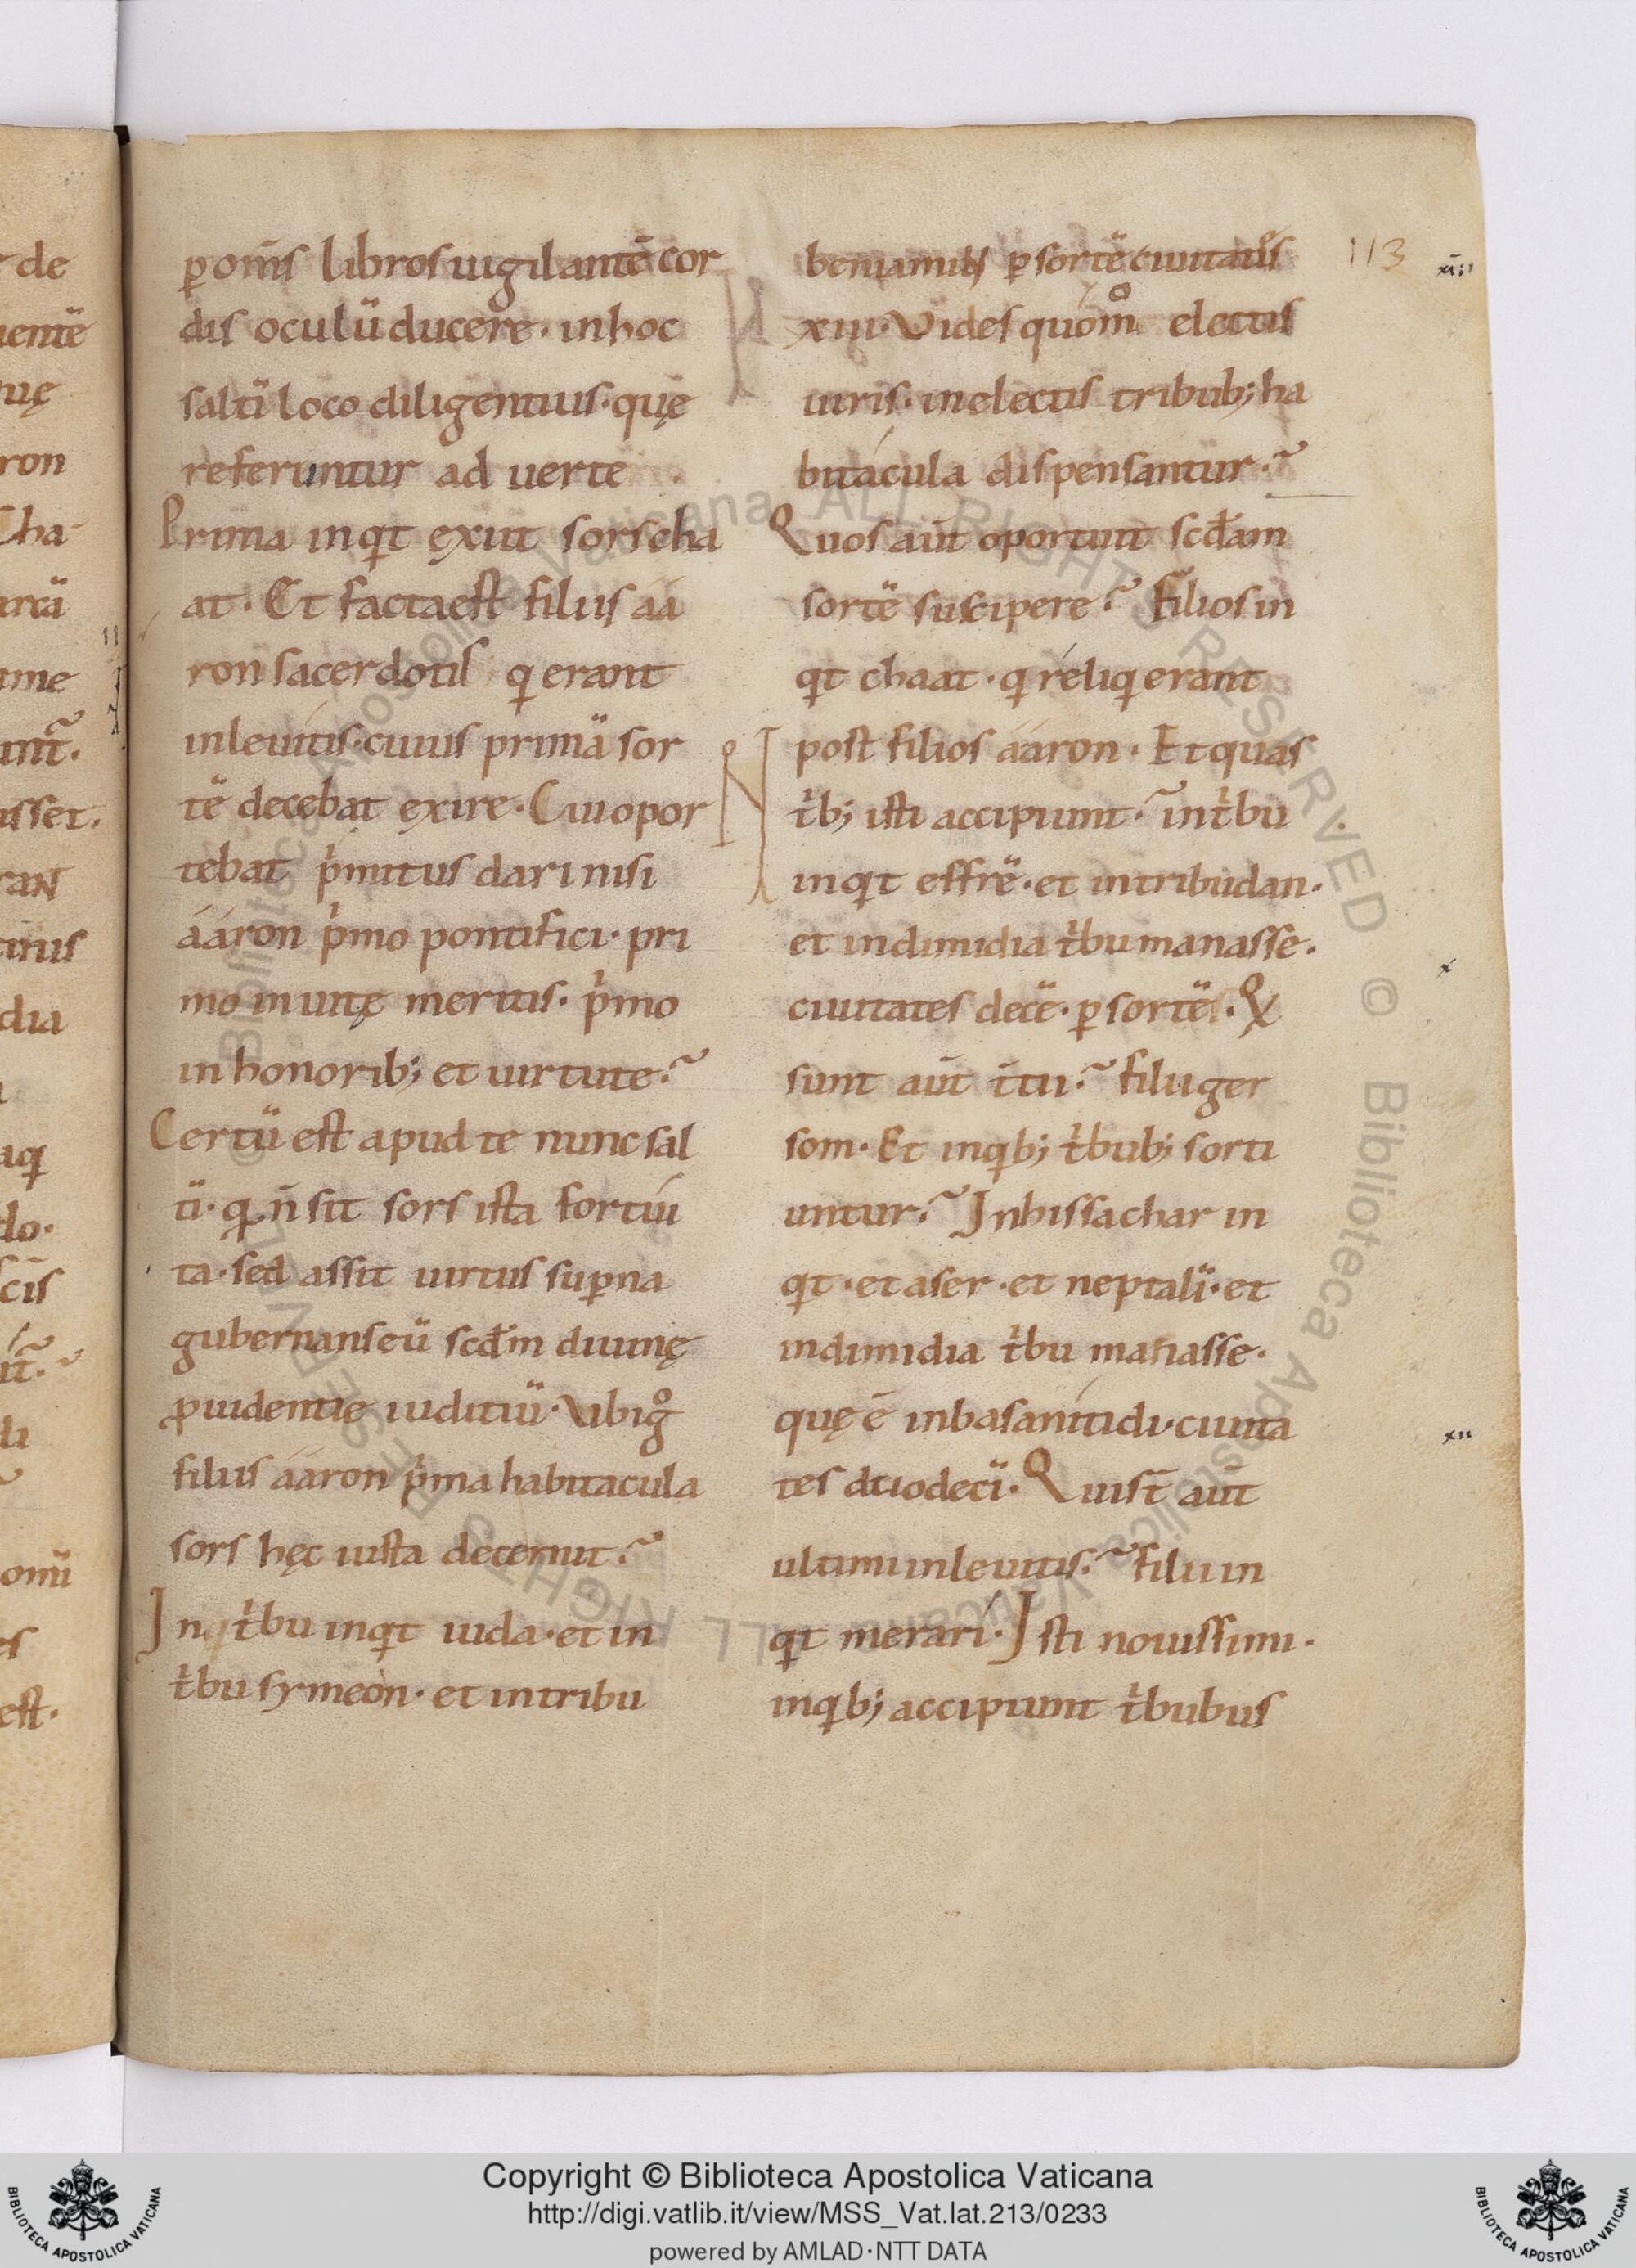 de
uentē
uę
ron
Cha
arcā
ame
unt̄.
isset.
ran
inis
dia
aq
do.
cis
it̄.
di
omī
es
est.
ꝑ om̄s libros uigilantē cor
dis oculū ducere. in hoc
saltī loco diligentius. quę
referuntur ad uerte
Prima inqt exiit sors cha
at. Et facta est filiis aa
ron sacerdotis q erant
in leuitis. cuius primā sor
tē decebat exire. Cui opor
tebat pͥmitus dari nisi
aaron pͥmo pontifici. pri
mo in uitę meritis. pͥmo
in honorib; et uirtute.
Certū est apud te nunc sal
tī. q n̄ sit sors ista fortui
ta. sed assit uirtus suꝑna
gubernans eū scdm̄ diuinę
ꝓuidentię iuditiū. Vbi gͦ
filiis aaron pͥma habitacula
sors hęc iusta decernit.
In tͥbu inqt iuda. et in
tͥbu symeon. et in tribu
beniamin ꝑ sortē ciuitates
xiii. Vides quom̊ electis
uiris. in electis tribub; ha
bitacula dispensantur.
Quos aūt oportuit scdam
sortē suscipere. Filios in
qt chaat. q reliq erant
post filios aaron. Et quas
tͥb; isti accipiunt. in tͥbu
inqt effrē. et in tribu dan.
et in dimidia tͥbu manasse.
ciuitates decē. ꝑ sortēs. Q
sunt aūt t̄tii. filii ger
som. Et inqb; tͥbub; sorti
untur. In hissachar in
qt. et aser. et neptali. et
in dimidia tͥbu manasse.
quę ē in basanitidi. ciuita
tes duodecī. Qui st̄ aūt
ultimi in leuitis. filii in
qt merari. Isti nouissimi.
inqb; accipiunt tͥbubus
113
xiii
x
xii
© Biblioteca Apostolica Vaticana ALL RIGHTS RESERVED © Biblioteca Apostolica Vaticana ALL RIGHTS RESERVED
Copyright © Biblioteca Apostolica Vaticana
http://digi.vatlib.it/view/MSS_Vat.lat.213/0233
powered by AMLAD·NTT DATA
BIBLIOTECA APOSTOLICA VATICANA
BIBLIOTECA APOSTOLICA VATICANA